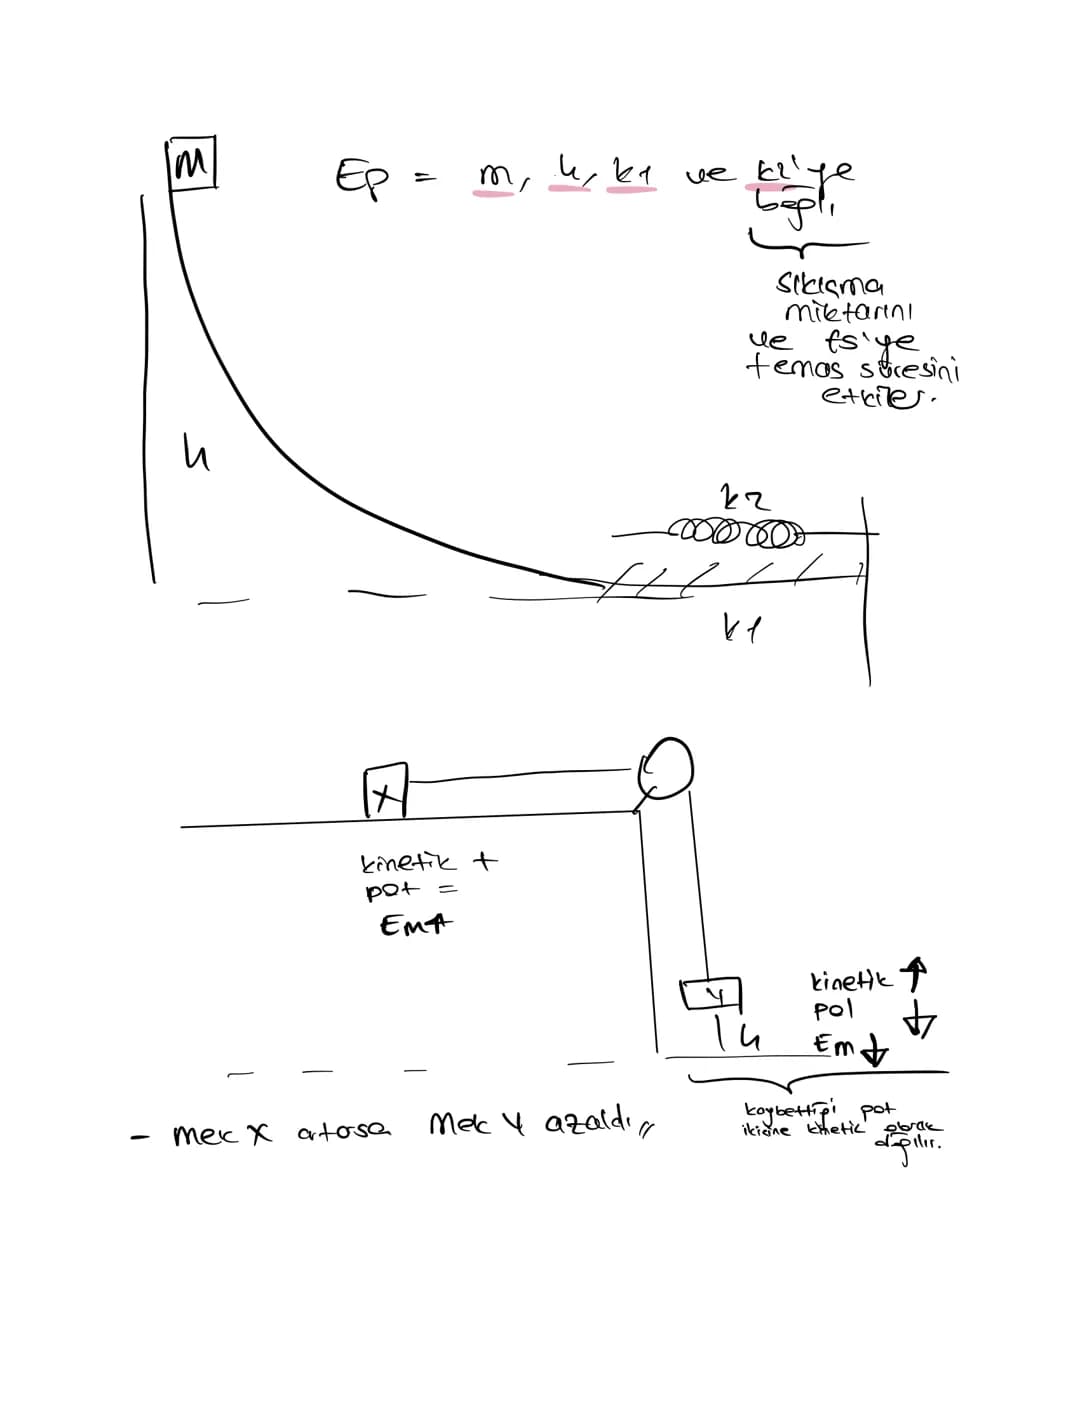 m
Ep = m, h, k1 ve k2'ye
bağlı
sıkışma
miktarını
ve fs'ye
temas süresini
etkiler.
h
k2
k1
X
kinetik +
pot =
Em↑
Y
h
kinetik ↑
pot ↓
Em ↓
kaybettiği pot
ikisine kinetik olarak
dağılır.
- mek X artarsa Mek Y azaldı